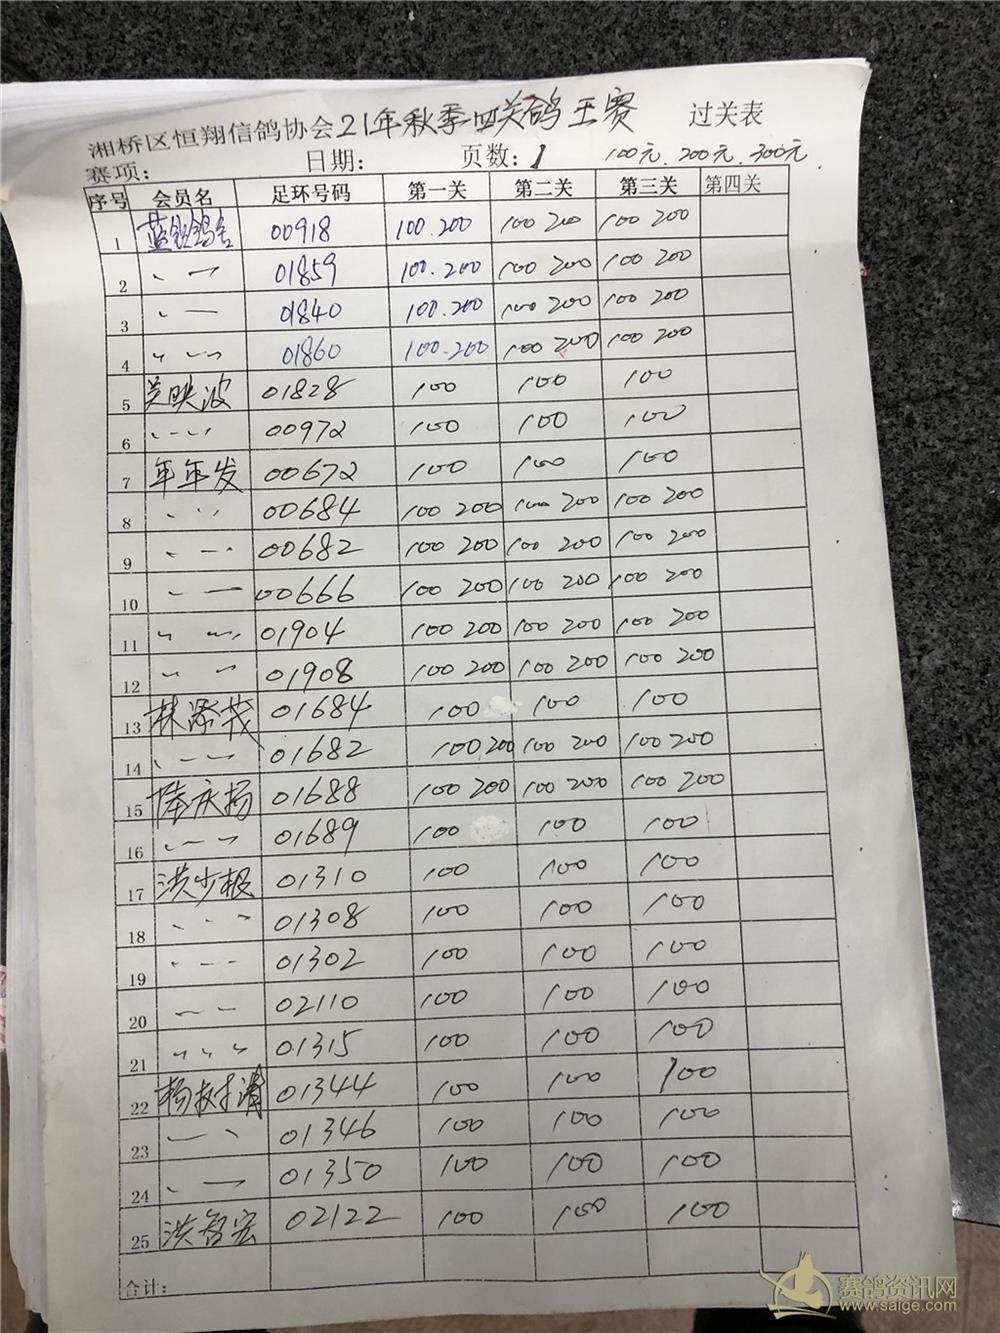 湘桥区恒翔信鸽协会21年秋季四关鸽王赛 过关表
赛项: 日期: 页数:1 100元.200元.300元
序号 会员名 足环号码 第一关 第二关 第三关 第四关
1 蓝钻鸽舍 00918 100.200 100 200 100 200
2 〃 — 01859 100.200 100 200 100 200
3 〃 — 01840 100.200 100 200 100 200
4 〃 〃 01860 100.200 100 200 100 200
5 吴映波 01828 100 100 100
6 〃 〃 00972 100 100 100
7 年年发 00672 100 100 100
8 〃 〃 00684 100 200 100 200 100 200
9 〃 〃 00682 100 200 100 200 100 200
10 〃 — 00666 100 200 100 200 100 200
11 〃 〃 01904 100 200 100 200 100 200
12 〃 〃 01908 100 200 100 200 100 200
13 林添茂 01684 100 100 100
14 〃 〃 01682 100 200 100 200 100 200
15 陆庆扬 01688 100 200 100 200 100 200
16 〃 〃 01689 100 100 100
17 洪少根 01310 100 100 100
18 〃 〃 01308 100 100 100
19 〃 〃 01302 100 100 100
20 〃 〃 02110 100 100 100
21 〃 〃 01315 100 100 100
22 杨树清 01344 100 100 100
23 〃 〃 01346 100 100 100
24 〃 — 01350 100 100 100
25 洪智宏 02122 100 100 100
合计:
赛鸽资讯网
www.saige.com